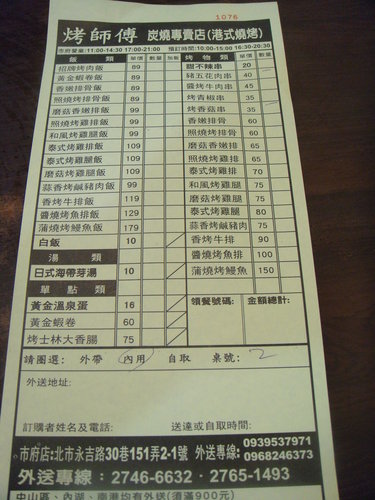 1076
烤師傅 炭燒專賣店(港式燒烤)
市府營業:11:00-14:30 17:00-21:00 預訂時間:10:00-15:00 16:30-20:30
飯類 單價 數量 加飯 烤物類 單價 數量
招牌烤肉飯 89 甜不辣串 20
黃金蝦卷飯 89 豬五花肉串 40
香嫩排骨飯 89 醬烤牛肉串 45
照燒烤排骨飯 89 烤青椒串 35
磨菇香嫩排飯 89 烤香菇串 35
照燒烤雞排飯 89 香烤排骨 60
和風烤雞腿飯 109 磨菇香嫩排 65
泰式烤雞排飯 99 照燒烤雞排 65
泰式烤雞腿飯 109 泰式烤雞排 70
磨菇烤雞腿飯 109 和風烤雞腿 75
蒜香烤鹹豬肉飯 99 磨菇烤雞腿 75
香烤牛排飯 119 泰式烤雞腿 80
醬燒烤魚排飯 129 蒜香烤鹹豬肉 75
蒲燒烤鰻魚飯 179 香烤牛排 90
白飯 10 醬燒烤魚排 100
湯類 蒲燒烤鰻魚 150
日式海帶芽湯 10
單點類
黃金溫泉蛋 16 領餐號碼: 金額總計:
黃金蝦卷 60
烤士林大香腸 75
請圈選: 外帶 內用 自取 桌號: 2
外送地址:
訂購者姓名及電話: 送達或自取時間:
市府店:北市永吉路30巷151弄2-1號 外送專線: 0939537971
0968246373
外送專線:2746-6632·2765-1493
中山區、內湖、南港均有外送(須滿900元)